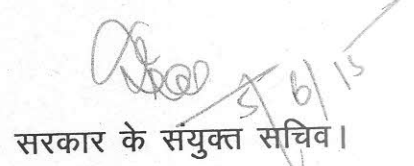 5/6/15
सरकार के संयुक्त सचिव।